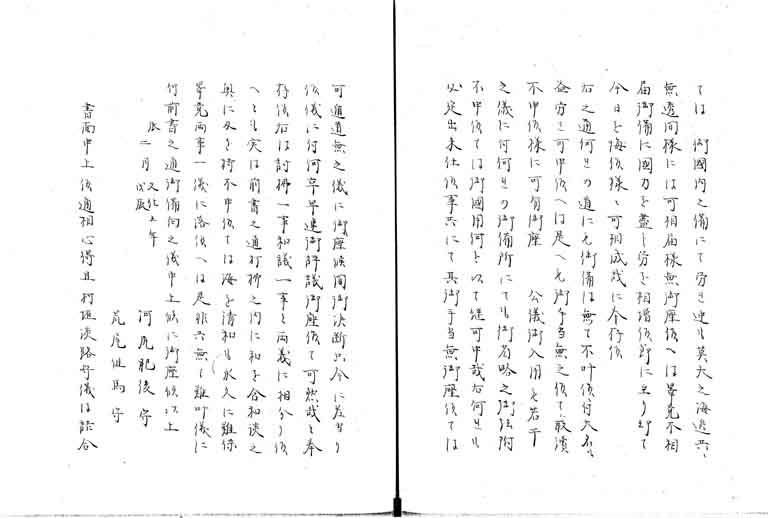 ては 御國内之備にて労き連も莫大之海辺共、
無透間様には可相届様無御座候へは畢竟不相
届御備に國力を盡し労を相増候節に至り却て
今日を悔候様ニ可相成哉に今存候
右之通何れの道にも御備は無て不叶候付大名
益労き可申候へは是へも御手当無之候て敵潰
不申候様に可有御座 公儀御入用も若干
之儀に付何れの御備所にても御省略之御法附
不申候ては御國用何を以て継可申哉右何れも
必定出来仕候事共にて其御手当無御座候ては
可通道無之儀に御座候間御決断只今に差当り
候儀に付何卒早速御評議御座候て可然哉と奉
存候右は討拂一事和議一事と両義に相分り候
へとも実は前書之通打拂之内に和を含和談之
奥に攻を持不申候ては海を清和も永久に難保
畢竟両事一儀に落候へは是非共無く難叶儀に
付前書之通御備向之儀申上候に御座候以上
辰二月 文化五年
戊辰
河尻肥後守
荒尾但馬守
書面申上候通相心得且村垣淡路守儀は談合